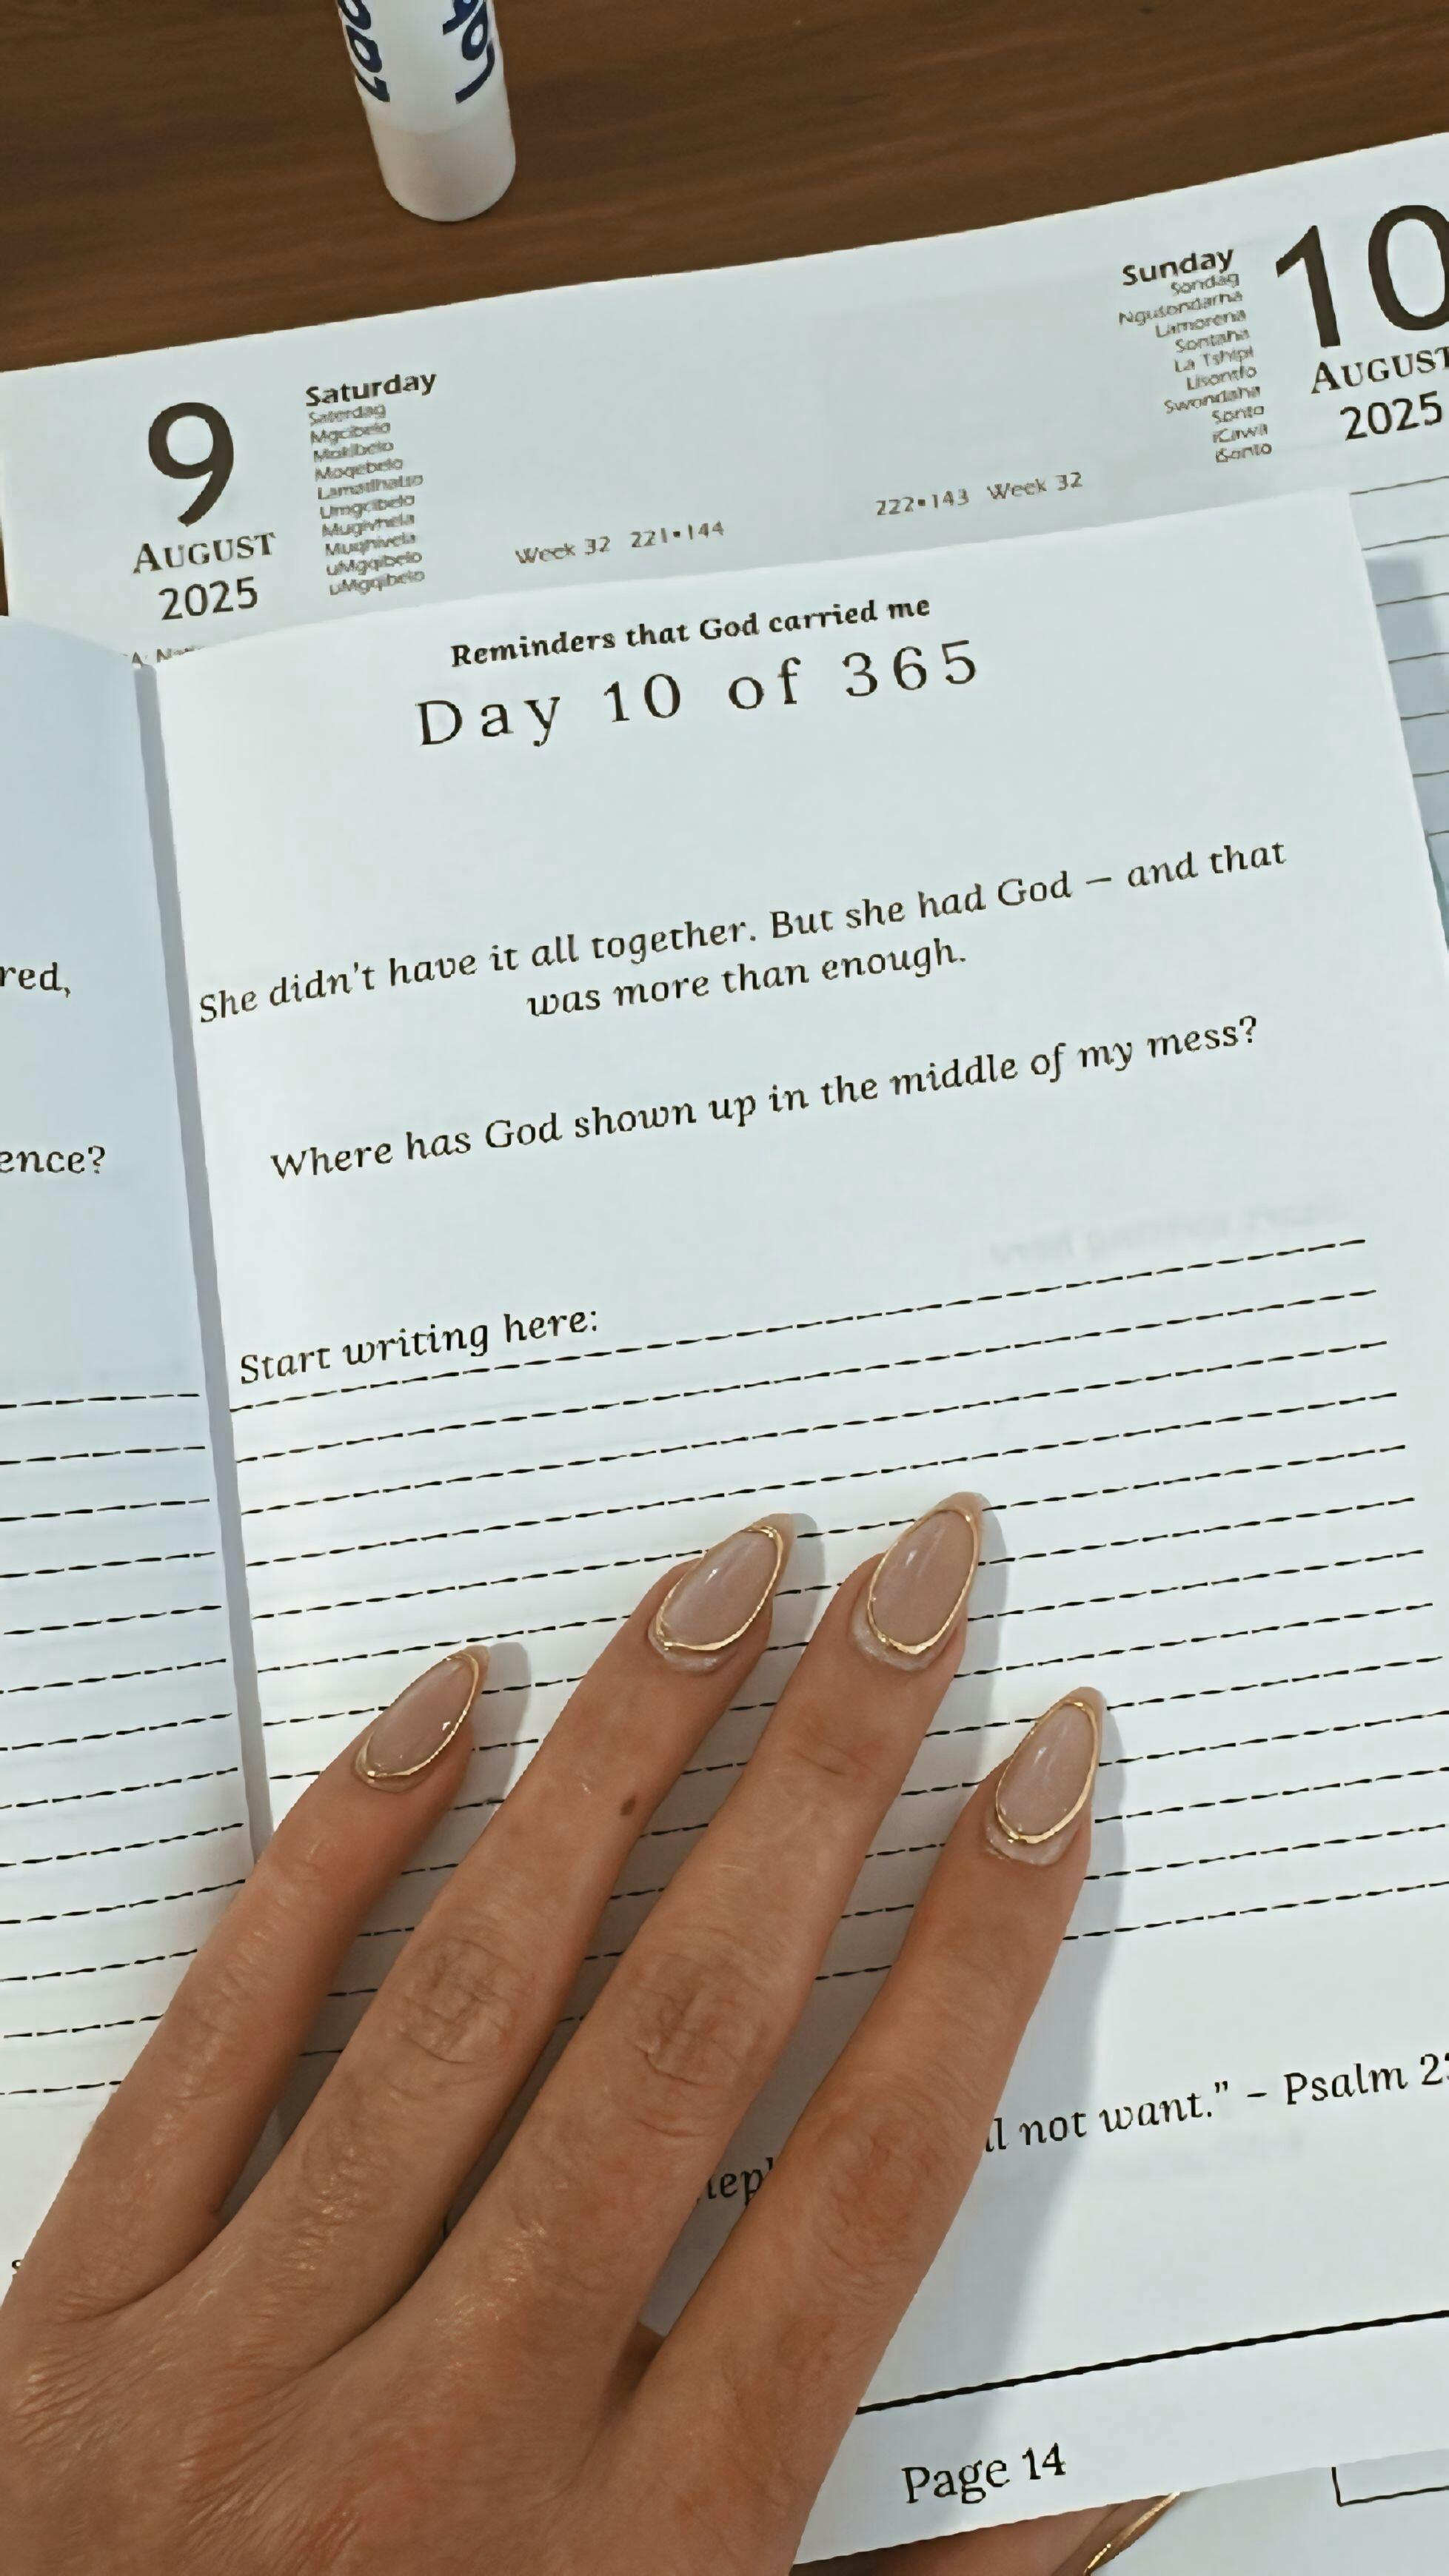 Lab
9
AUGUST
2025
Saturday
Saterdag
Mgcibelo
Mokibelo
Moqebelo
Lamatlhatso
Umgcibelo
Mugivhela
Mugqivela
uMgqibelo
uMgqibelo
Week 32 221•144
222•143 Week 32
Sunday
Sondag
Lamorena
Sontaha
La Tshipi
Lisontfo
Swondaha
Sonto
iCawa
iSonto
10
AUGUST
2025
Reminders that God carried me
Day 10 of 365
She didn't have it all together. But she had God – and that
was more than enough.
Where has God shown up in the middle of my mess?
Start writing here:
red,
ence?
ll not want.” – Psalm 2
Page 14